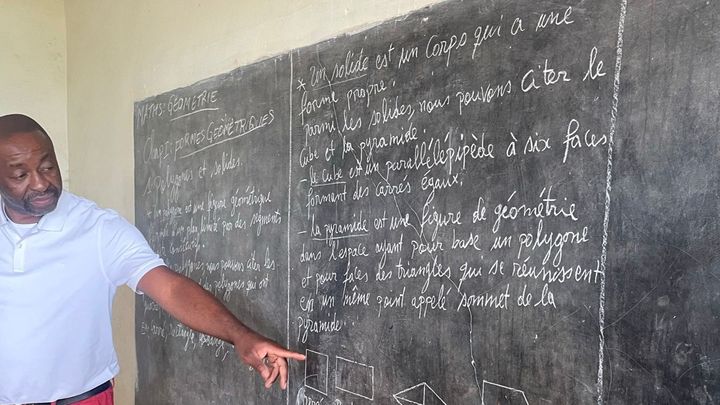 MATHS: GÉOMÉTRIE
Chap: FORMES GÉOMÉTRIQUES
Polygones et solides.
polygone est une figure géométrique
plan limité par des segments
polygones, nous pouvons citer les
des polygones qui ont
rectangle, losange
* Un solide est un corps qui a une
forme propre.
Parmi les solides, nous pouvons citer le
cube et la pyramide.
- le cube est un parallélépipède à six faces
formant des carrés égaux.
- la pyramide est une figure de géométrie
dans l'espace ayant pour base un polygone
et pour faces des triangles qui se réunissent
en un même point appelé sommet de la
pyramide.